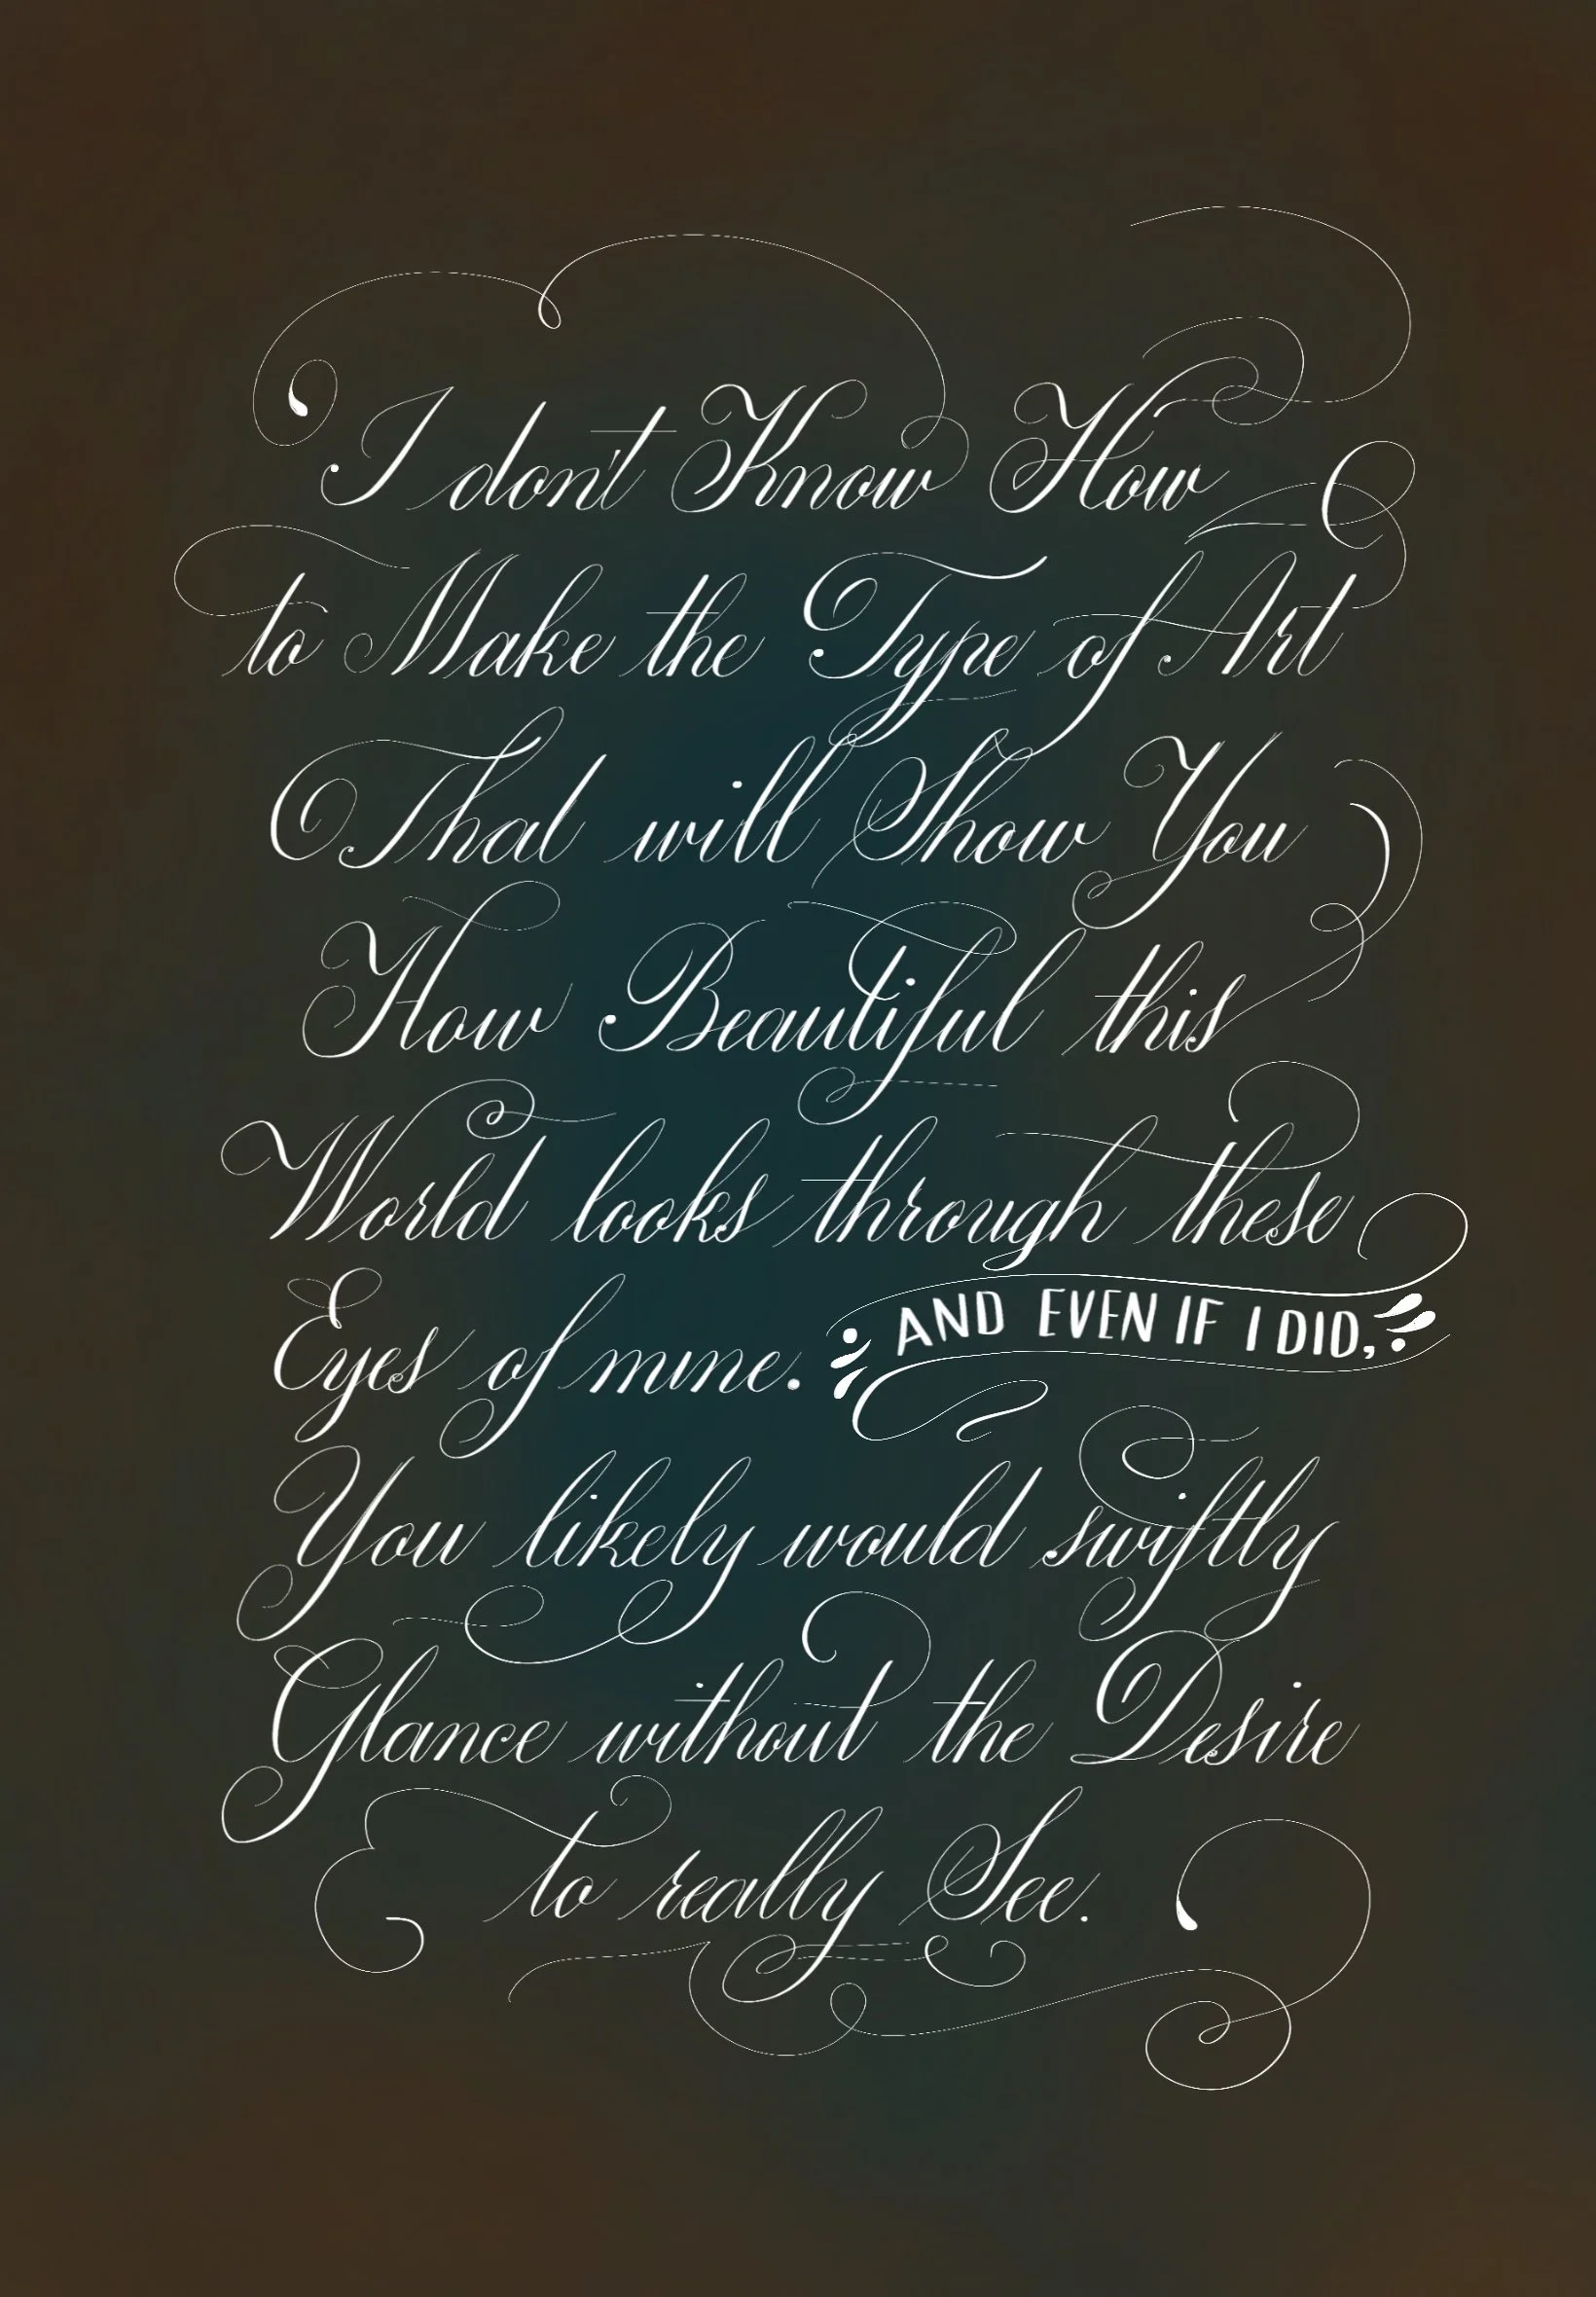 I don't Know How
to Make the Type of Art
That will Show You
How Beautiful this
World looks through these
Eyes of mine. AND EVEN IF I DID,
You likely would swiftly
Glance without the Desire
to really See.